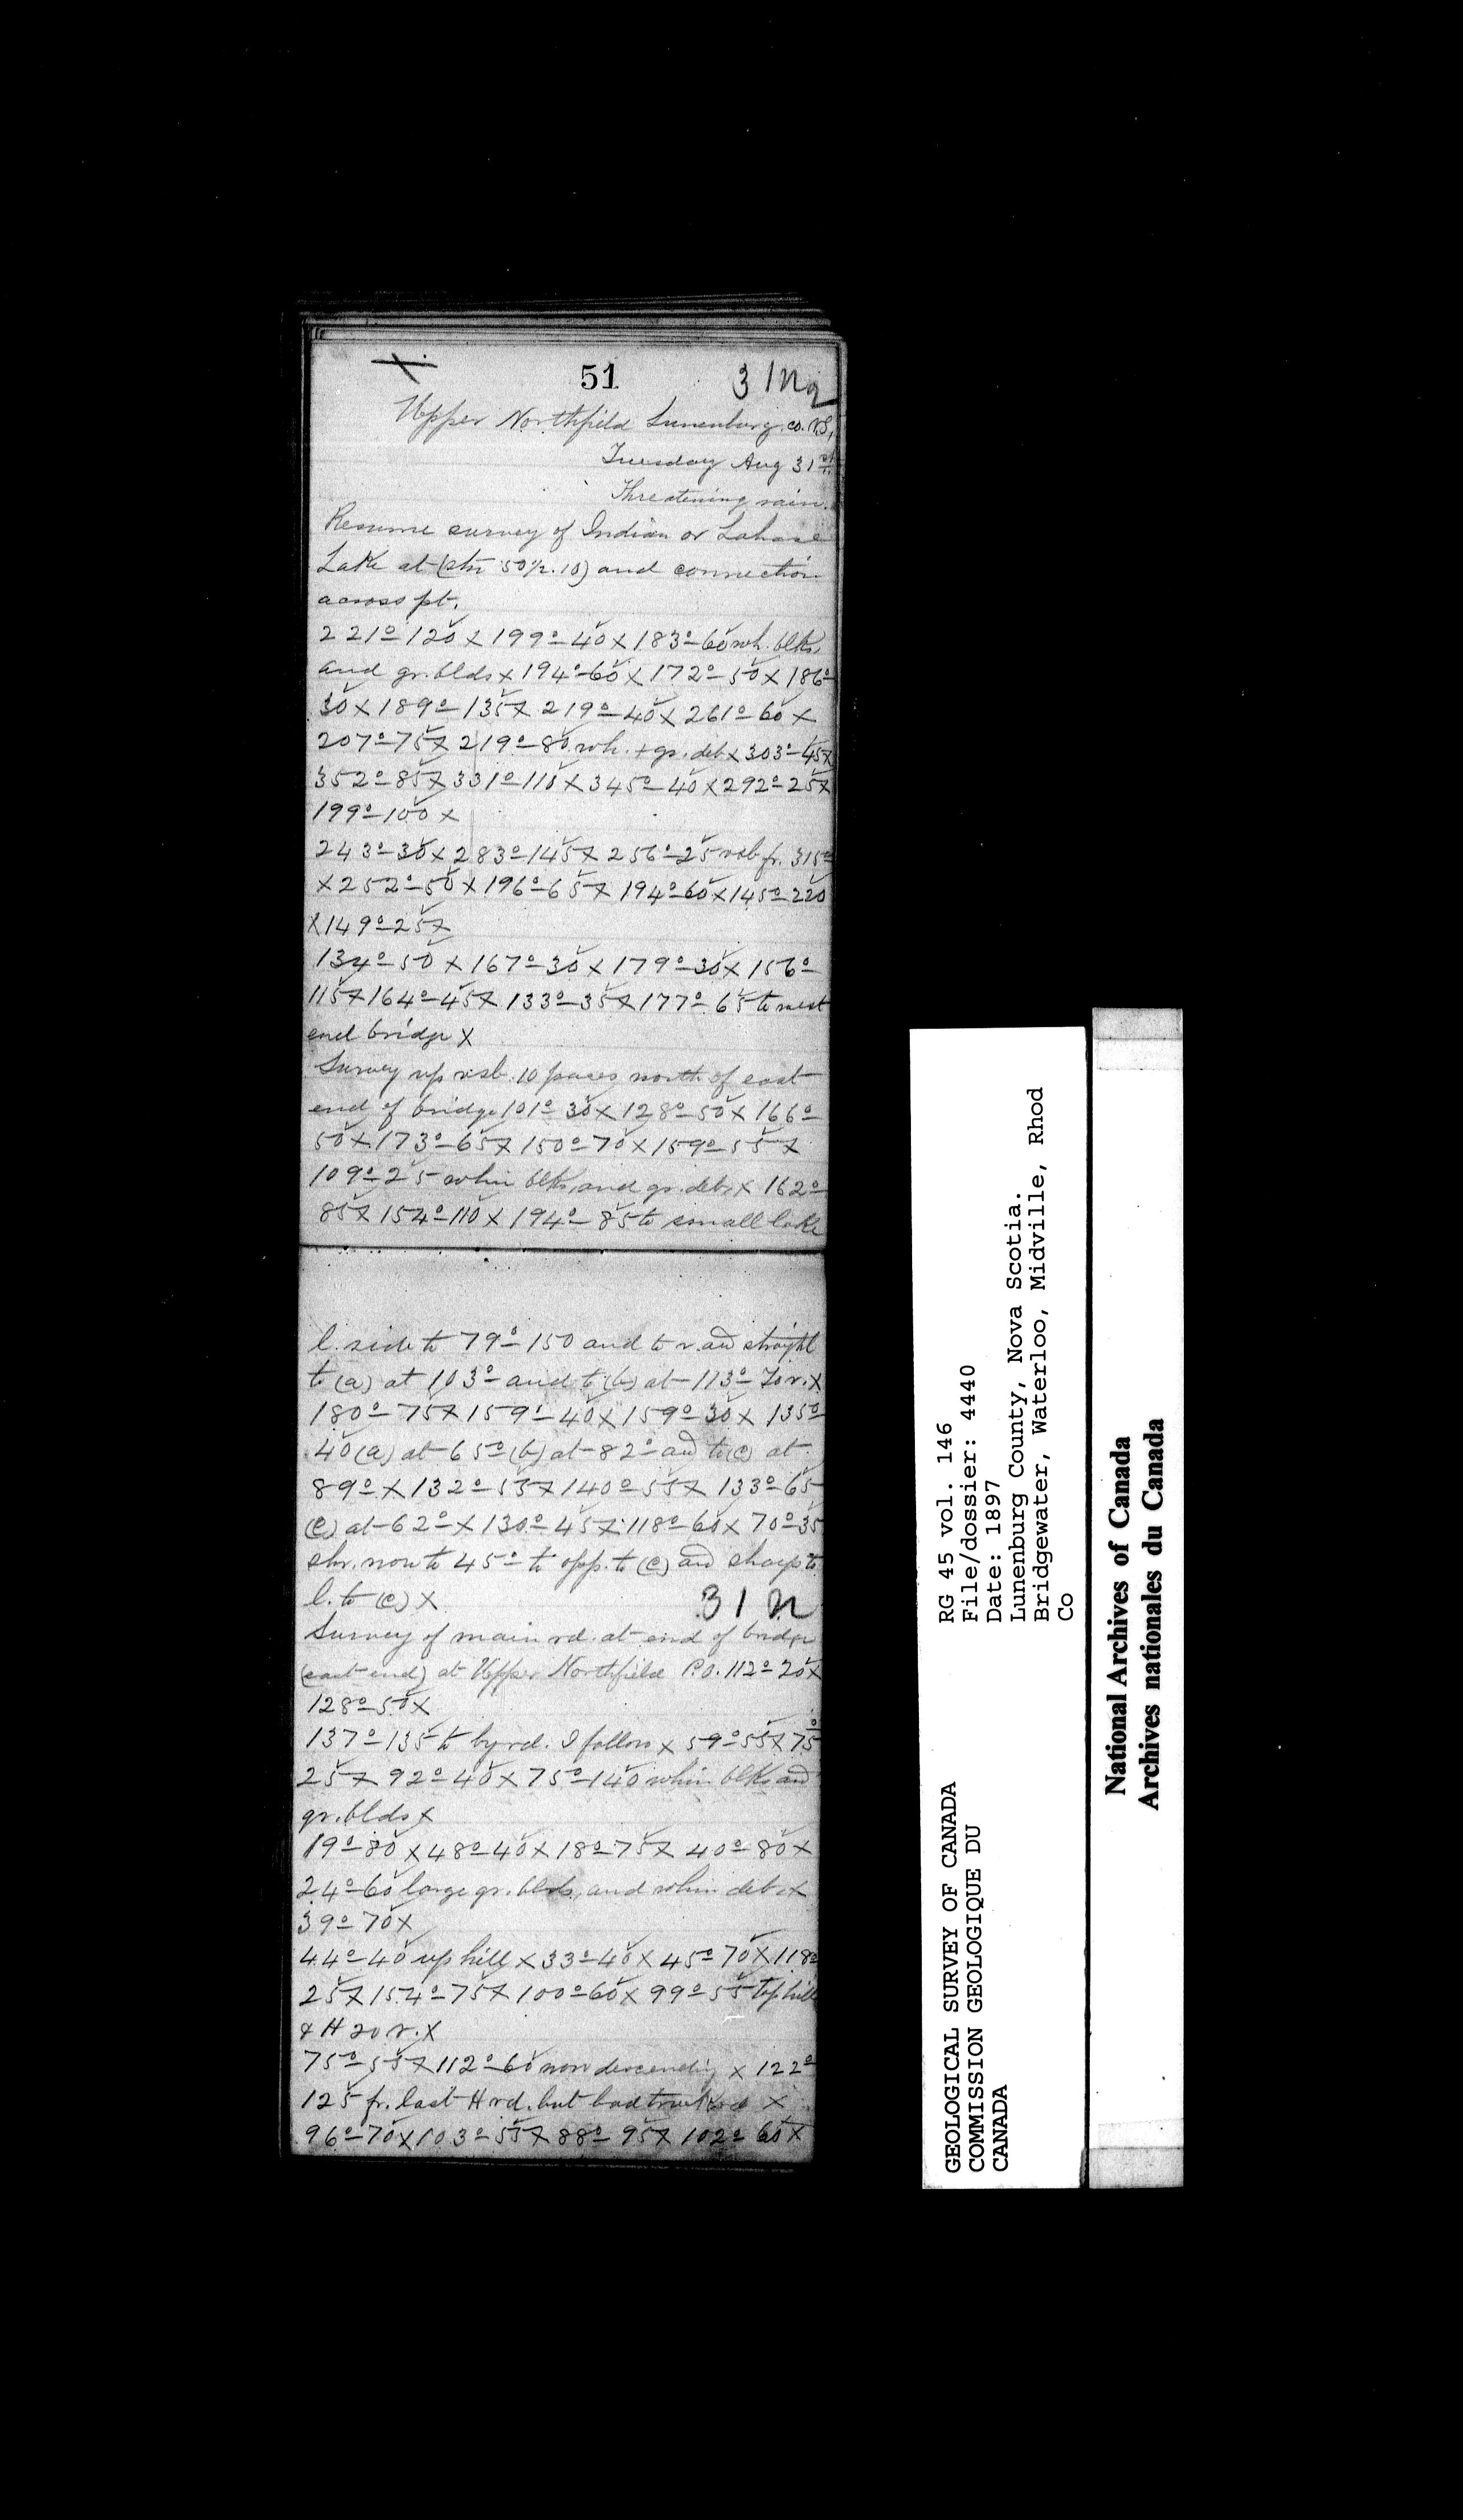 51
31 n 2
Upper Northfield Lunenburg co. N.S,
Tuesday Aug 31st
Threatening rain.
Resume survey of Indian or Lahave
Lake at (stn 50½.10) and connection
across pt.
221°-120 x 199°-40 x 183°-60 wh. blks,
and gr. blds x 194°-60 x 172°-50 x 186°-
30 x 189°-135 x 219°-40 x 261°-60 x
207°-75 x 219°-80 wh. + gr. deb x 303°-45 x
352°-85 x 331°-110 x 345°-40 x 292°-25 x
199°-100 x
243°-30 x 283°-145 x 256°-25 fr. 315°
x 252°-50 x 196°-65 x 194°-60 x 145°-220
x 149°-25 x
134°-50 x 167°-30 x 179°-30 x 156°-
115 x 164°-45 x 133°-35 x 177°-65 to west
end bridge x
Survey up 10 paces north of east
end of bridge 101°-30 x 128°-50 x 166°-
50 x 173°-65 x 150°-70 x 159°-55 x
109°-25 whin blks, and gr. deb, x 162°-
85 x 154°-110 x 194°-85 to small lake
l. side to 79°-150 and to r. and straight
to (a) at 103° and to (b) at 113°- 20 r. x
180°-75 x 159°-40 x 159°-30 x 135°-
40 (a) at 65° (b) at 82° and to (c) at
89° x 132°-55 x 140°-55 x 133°-65
(c) at 62° x 130°-45 x 118°-60 x 70°-35
shr. now to 45° to opp. to (c) and sharp to
l. to (c) x
31 n
Survey of main rd. at end of bridge
(east end) at Upper Northfield P.O. 112°-20 x
128°-50 x
137°-135 to by rd. I follow x 59°-55 x 75°
25 x 92°-40 x 75°-140 whin blks and
gr. blds x
19°-80 x 48°-40 x 18°-75 x 40°-80 x
24°-60 large gr. blds, and whin deb. x
39°-70 x
44°-40 up hill x 33°-40 x 45°-70 x 118°-
25 x 154°-75 x 100°-60 x 99°-55 top hill
& H 20 r. x
75°-55 x 112°-60 now descending x 122°-
125 fr. last H rd. but bad truck rd x
96°-70 x 103°-55 x 88°-95 x 102°-60 x
RG 45 vol. 146
File/dossier: 4440
Date: 1897
Lunenburg County, Nova Scotia.
Bridgewater, Waterloo, Midville, Rhod
Co
GEOLOGICAL SURVEY OF CANADA
COMMISSION GEOLOGIQUE DU
CANADA
National Archives of Canada
Archives nationales du Canada